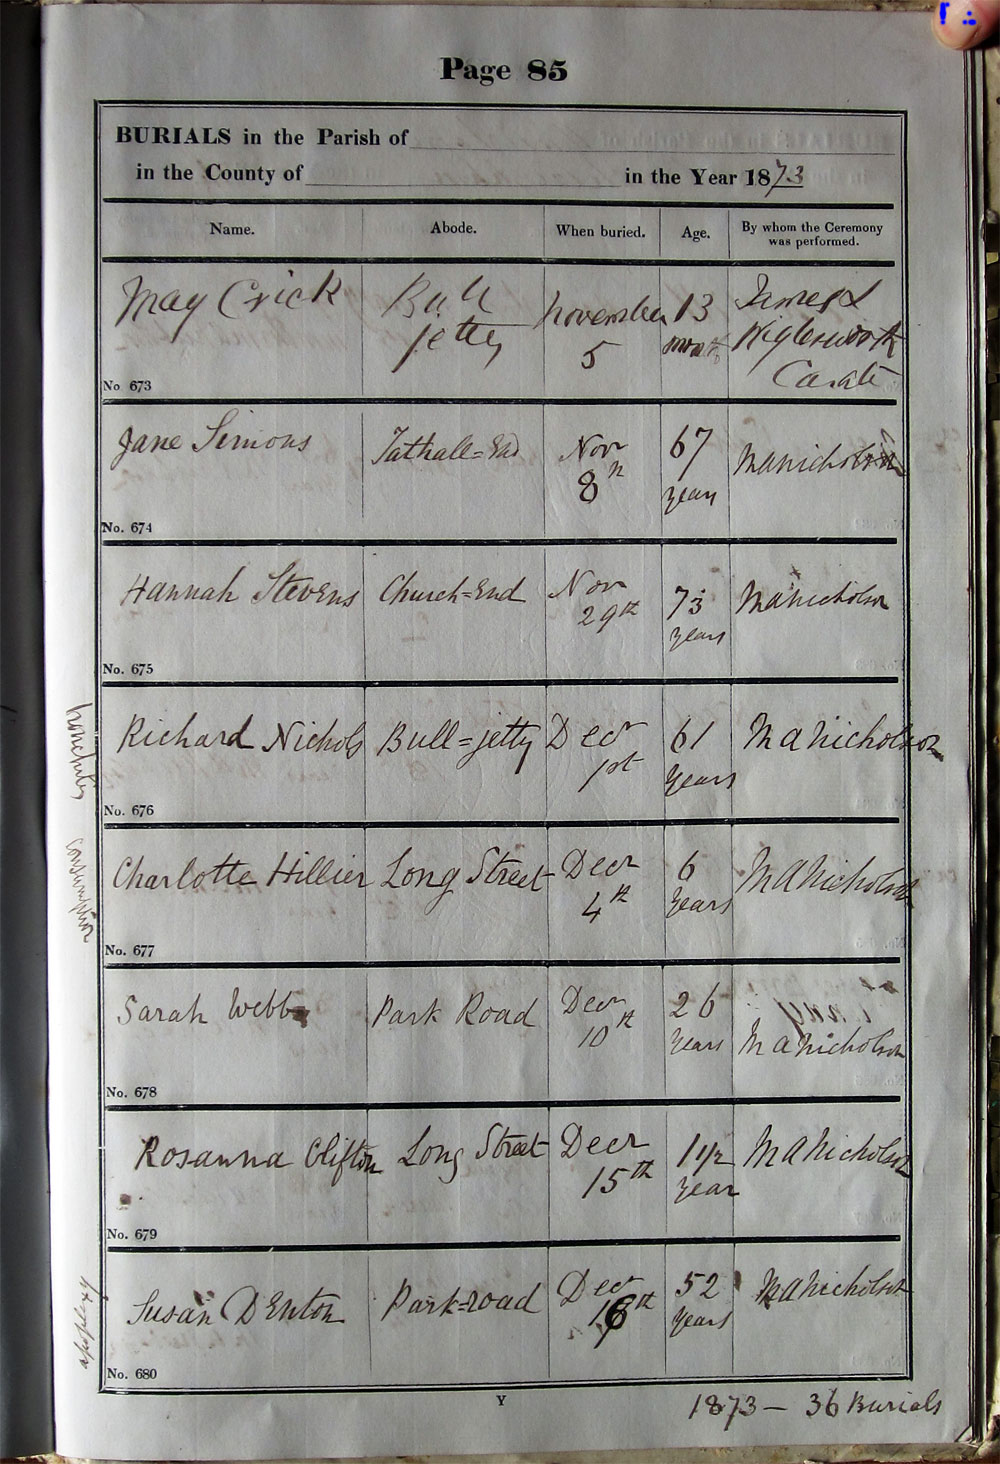 Page 85
BURIALS in the Parish of
in the County of in the Year 1873
Name. Abode. When buried. Age. By whom the Ceremony was performed.
May Crick Bull november 13 James L
jetty 5 month Wiglesworth
Curate
No 673
Jane Simons Tathall=End Nov 67 MANicholson
8th years
No. 674
Hannah Stevens Church=End Nov 73 MANicholson
29th years
No. 675
Richard Nichols Bull=jetty Decr 61 MANicholson
1st years
No. 676
Charlotte Hillier Long Street Decr 6 MANicholson
4th years
consumption
No. 677
Sarah Webb Park Road Decr 26
10th years MANicholson
No. 678
Rosanna Clifton Long Street Decr 1 1/2 MANicholson
15th year
No. 679
Susan Denton Park=road Decr 52 MANicholson
th years
apoplexy
No. 680
Y
1873 — 36 Burials